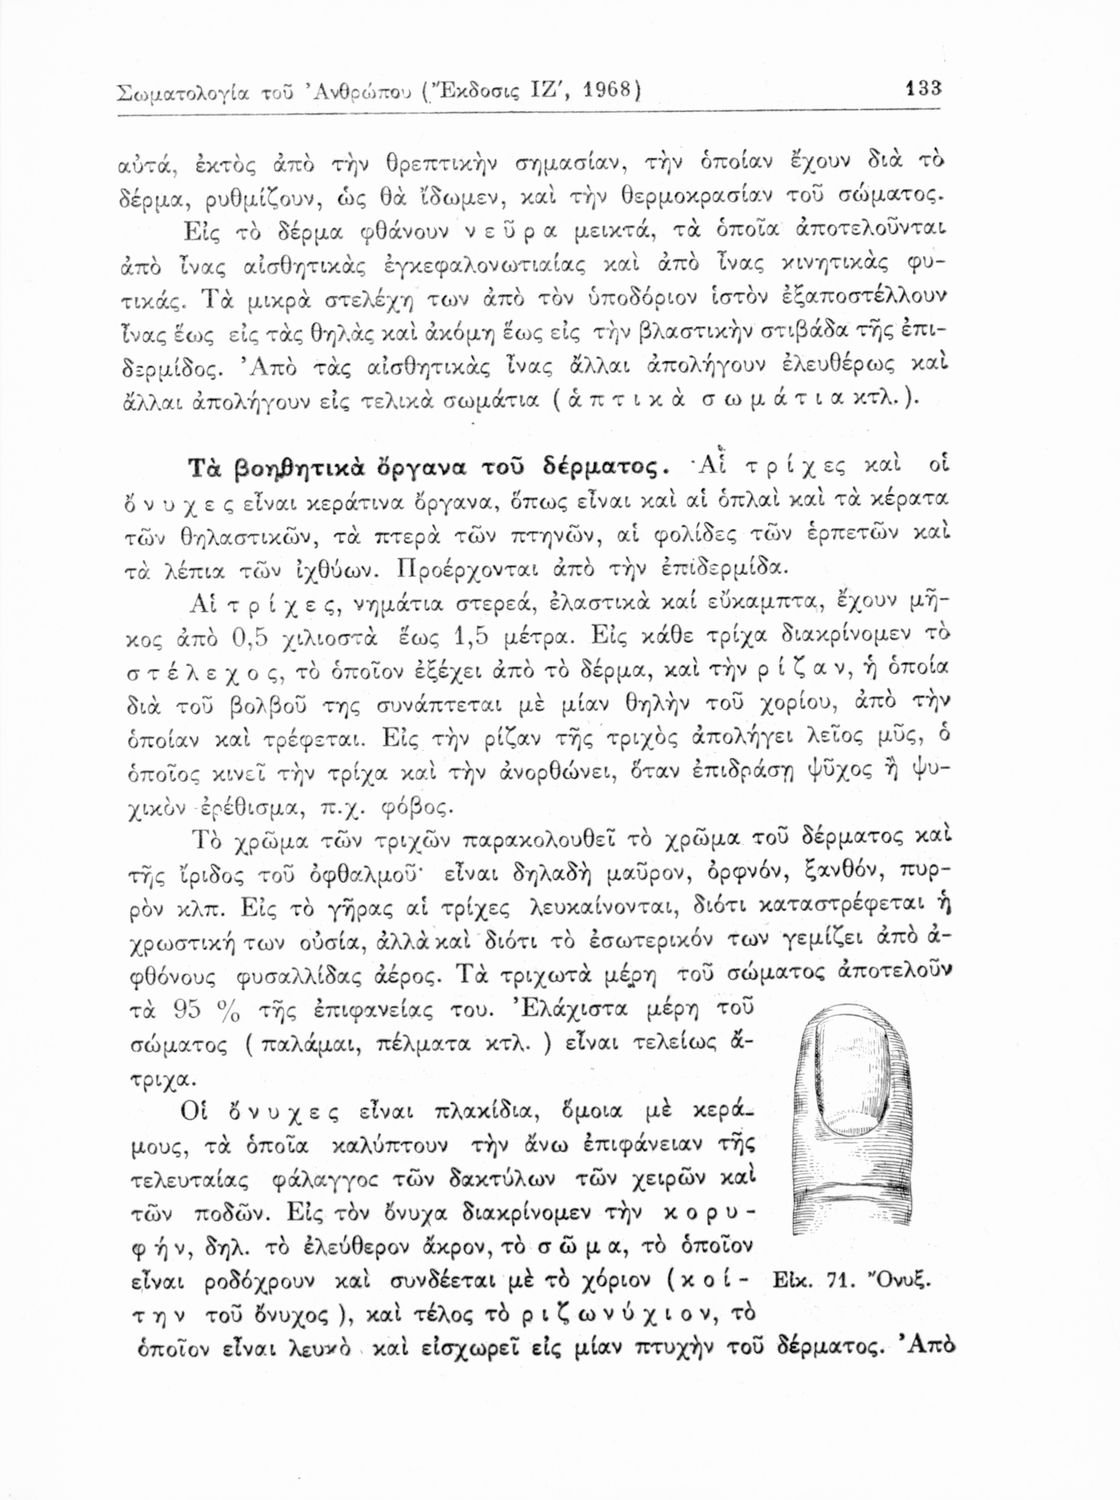 Σωματολογία τοῦ Ἀνθρώπου (Ἔκδοσις ΙΖ′, 1968) 133
αὐτά, ἐκτὸς ἀπὸ τὴν θρεπτικὴν σημασίαν, τὴν ὁποίαν ἔχουν διὰ τὸ
δέρμα, ρυθμίζουν, ὡς θὰ ἴδωμεν, καὶ τὴν θερμοκρασίαν τοῦ σώματος.
Εἰς τὸ δέρμα φθάνουν ν ε ῦ ρ α μεικτά, τὰ ὁποῖα ἀποτελοῦνται
ἀπὸ ἶνας αἰσθητικὰς ἐγκεφαλονωτιαίας καὶ ἀπὸ ἶνας κινητικὰς φυ-
τικάς. Τὰ μικρὰ στελέχη των ἀπὸ τὸν ὑποδόριον ἱστὸν ἐξαποστέλλουν
ἶνας ἕως εἰς τὰς θηλὰς καὶ ἀκόμη ἕως εἰς τὴν βλαστικὴν στιβάδα τῆς ἐπι-
δερμίδος. Ἀπὸ τὰς αἰσθητικὰς ἶνας ἄλλαι ἀπολήγουν ἐλευθέρως καὶ
ἄλλαι ἀπολήγουν εἰς τελικὰ σωμάτια (ἁ π τ ι κ ὰ σ ω μ ά τ ι α κτλ.).
Τὰ βοηθητικὰ ὄργανα τοῦ δέρματος. Αἱ τ ρ ί χ ες καὶ οἱ
ὄ ν υ χ ε ς εἶναι κεράτινα ὄργανα, ὅπως εἶναι καὶ αἱ ὁπλαὶ καὶ τὰ κέρατα
τῶν θηλαστικῶν, τὰ πτερὰ τῶν πτηνῶν, αἱ φολίδες τῶν ἑρπετῶν καὶ
τὰ λέπια τῶν ἰχθύων. Προέρχονται ἀπὸ τὴν ἐπιδερμίδα.
Αἱ τ ρ ί χ ε ς, νημάτια στερεά, ἐλαστικὰ καί εὔκαμπτα, ἔχουν μῆ-
κος ἀπὸ 0,5 χιλιοστὰ ἕως 1,5 μέτρα. Εἰς κάθε τρίχα διακρίνομεν τὸ
σ τ έ λ ε χ ο ς, τὸ ὁποῖον ἐξέχει ἀπὸ τὸ δέρμα, καὶ τὴν ρ ί ζ α ν, ἡ ὁποία
διὰ τοῦ βολβοῦ της συνάπτεται μὲ μίαν θηλὴν τοῦ χορίου, ἀπὸ τὴν
ὁποίαν καὶ τρέφεται. Εἰς τὴν ρίζαν τῆς τριχὸς ἀπολήγει λεῖος μῦς, ὁ
ὁποῖος κινεῖ τὴν τρίχα καὶ τὴν ἀνορθώνει, ὅταν ἐπιδράσῃ ψῦχος ἢ ψυ-
χικὸν ἐρέθισμα, π.χ. φόβος.
Τὸ χρῶμα τῶν τριχῶν παρακολουθεῖ τὸ χρῶμα τοῦ δέρματος καὶ
τῆς ἴριδος τοῦ ὀφθαλμοῦ· εἶναι δηλαδὴ μαῦρον, ὀρφνόν, ξανθόν, πυρ-
ρὸν κλπ. Εἰς τὸ γῆρας αἱ τρίχες λευκαίνονται, διότι καταστρέφεται ἡ
χρωστική των οὐσία, ἀλλὰ καὶ διότι τὸ ἐσωτερικόν των γεμίζει ἀπὸ ἀ-
φθόνους φυσαλλίδας ἀέρος. Τὰ τριχωτὰ μέρη τοῦ σώματος ἀποτελοῦν
τὰ 95 % τῆς ἐπιφανείας του. Ἐλάχιστα μέρη τοῦ
σώματος ( παλάμαι, πέλματα κτλ. ) εἶναι τελείως ἄ-
τριχα.
Οἱ ὄ ν υ χ ε ς εἶναι πλακίδια, ὅμοια μὲ κερά-
μους, τὰ ὁποῖα καλύπτουν τὴν ἄνω ἐπιφάνειαν τῆς
τελευταίας φάλαγγος τῶν δακτύλων τῶν χειρῶν καὶ
τῶν ποδῶν. Εἰς τὸν ὄνυχα διακρίνομεν τὴν κ ο ρ υ -
φ ή ν, δηλ. τὸ ἐλεύθερον ἄκρον, τὸ σ ῶ μ α, τὸ ὁποῖον
εἶναι ροδόχρουν καὶ συνδέεται μὲ τὸ χόριον (κ ο ί -
τ η ν τοῦ ὄνυχος ), καὶ τέλος τὸ ρ ι ζ ω ν ύ χ ι ο ν, τὸ
ὁποῖον εἶναι λευκὸ καὶ εἰσχωρεῖ εἰς μίαν πτυχὴν τοῦ δέρματος. Ἀπὸ
Εἰκ. 71. Ὄνυξ.